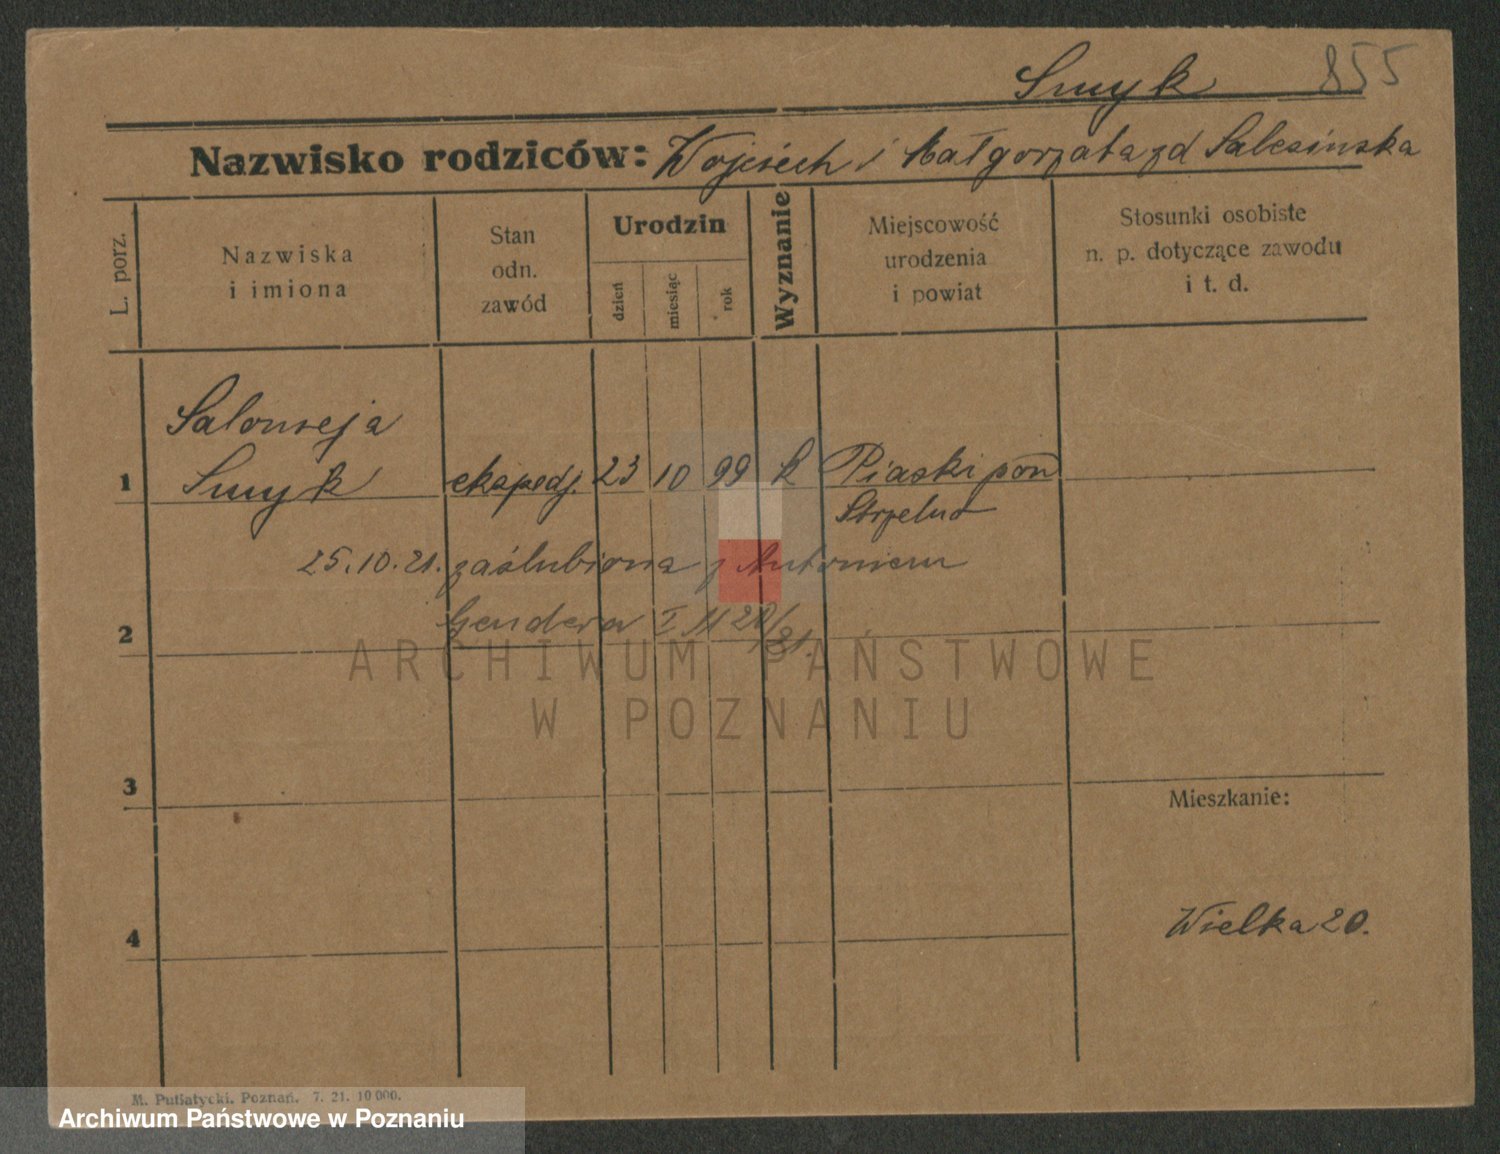 Smyk 855
Nazwisko rodziców: Wojciech i Małgorzata zd
L. porz.
Nazwiska
i imiona
Stan
odn.
zawód
Urodzin
dzień
miesiąc
rok
Wyznanie
Miejscowość
urodzenia
i powiat
Stosunki osobiste
n. p. dotyczące zawodu
i t. d.
Salomeja
1 Smyk ekspedj. 23 10 99 k Piaski pow
Strzelno
25.10.21. zaślubiona z Antoniem
2 Gendera
ARCHIWUM PAŃSTWOWE
W POZNANIU
3
Mieszkanie:
4 Wielka 20.
M. Putiatycki, Poznań. 7. 21. 10 000.
Archiwum Państwowe w Poznaniu